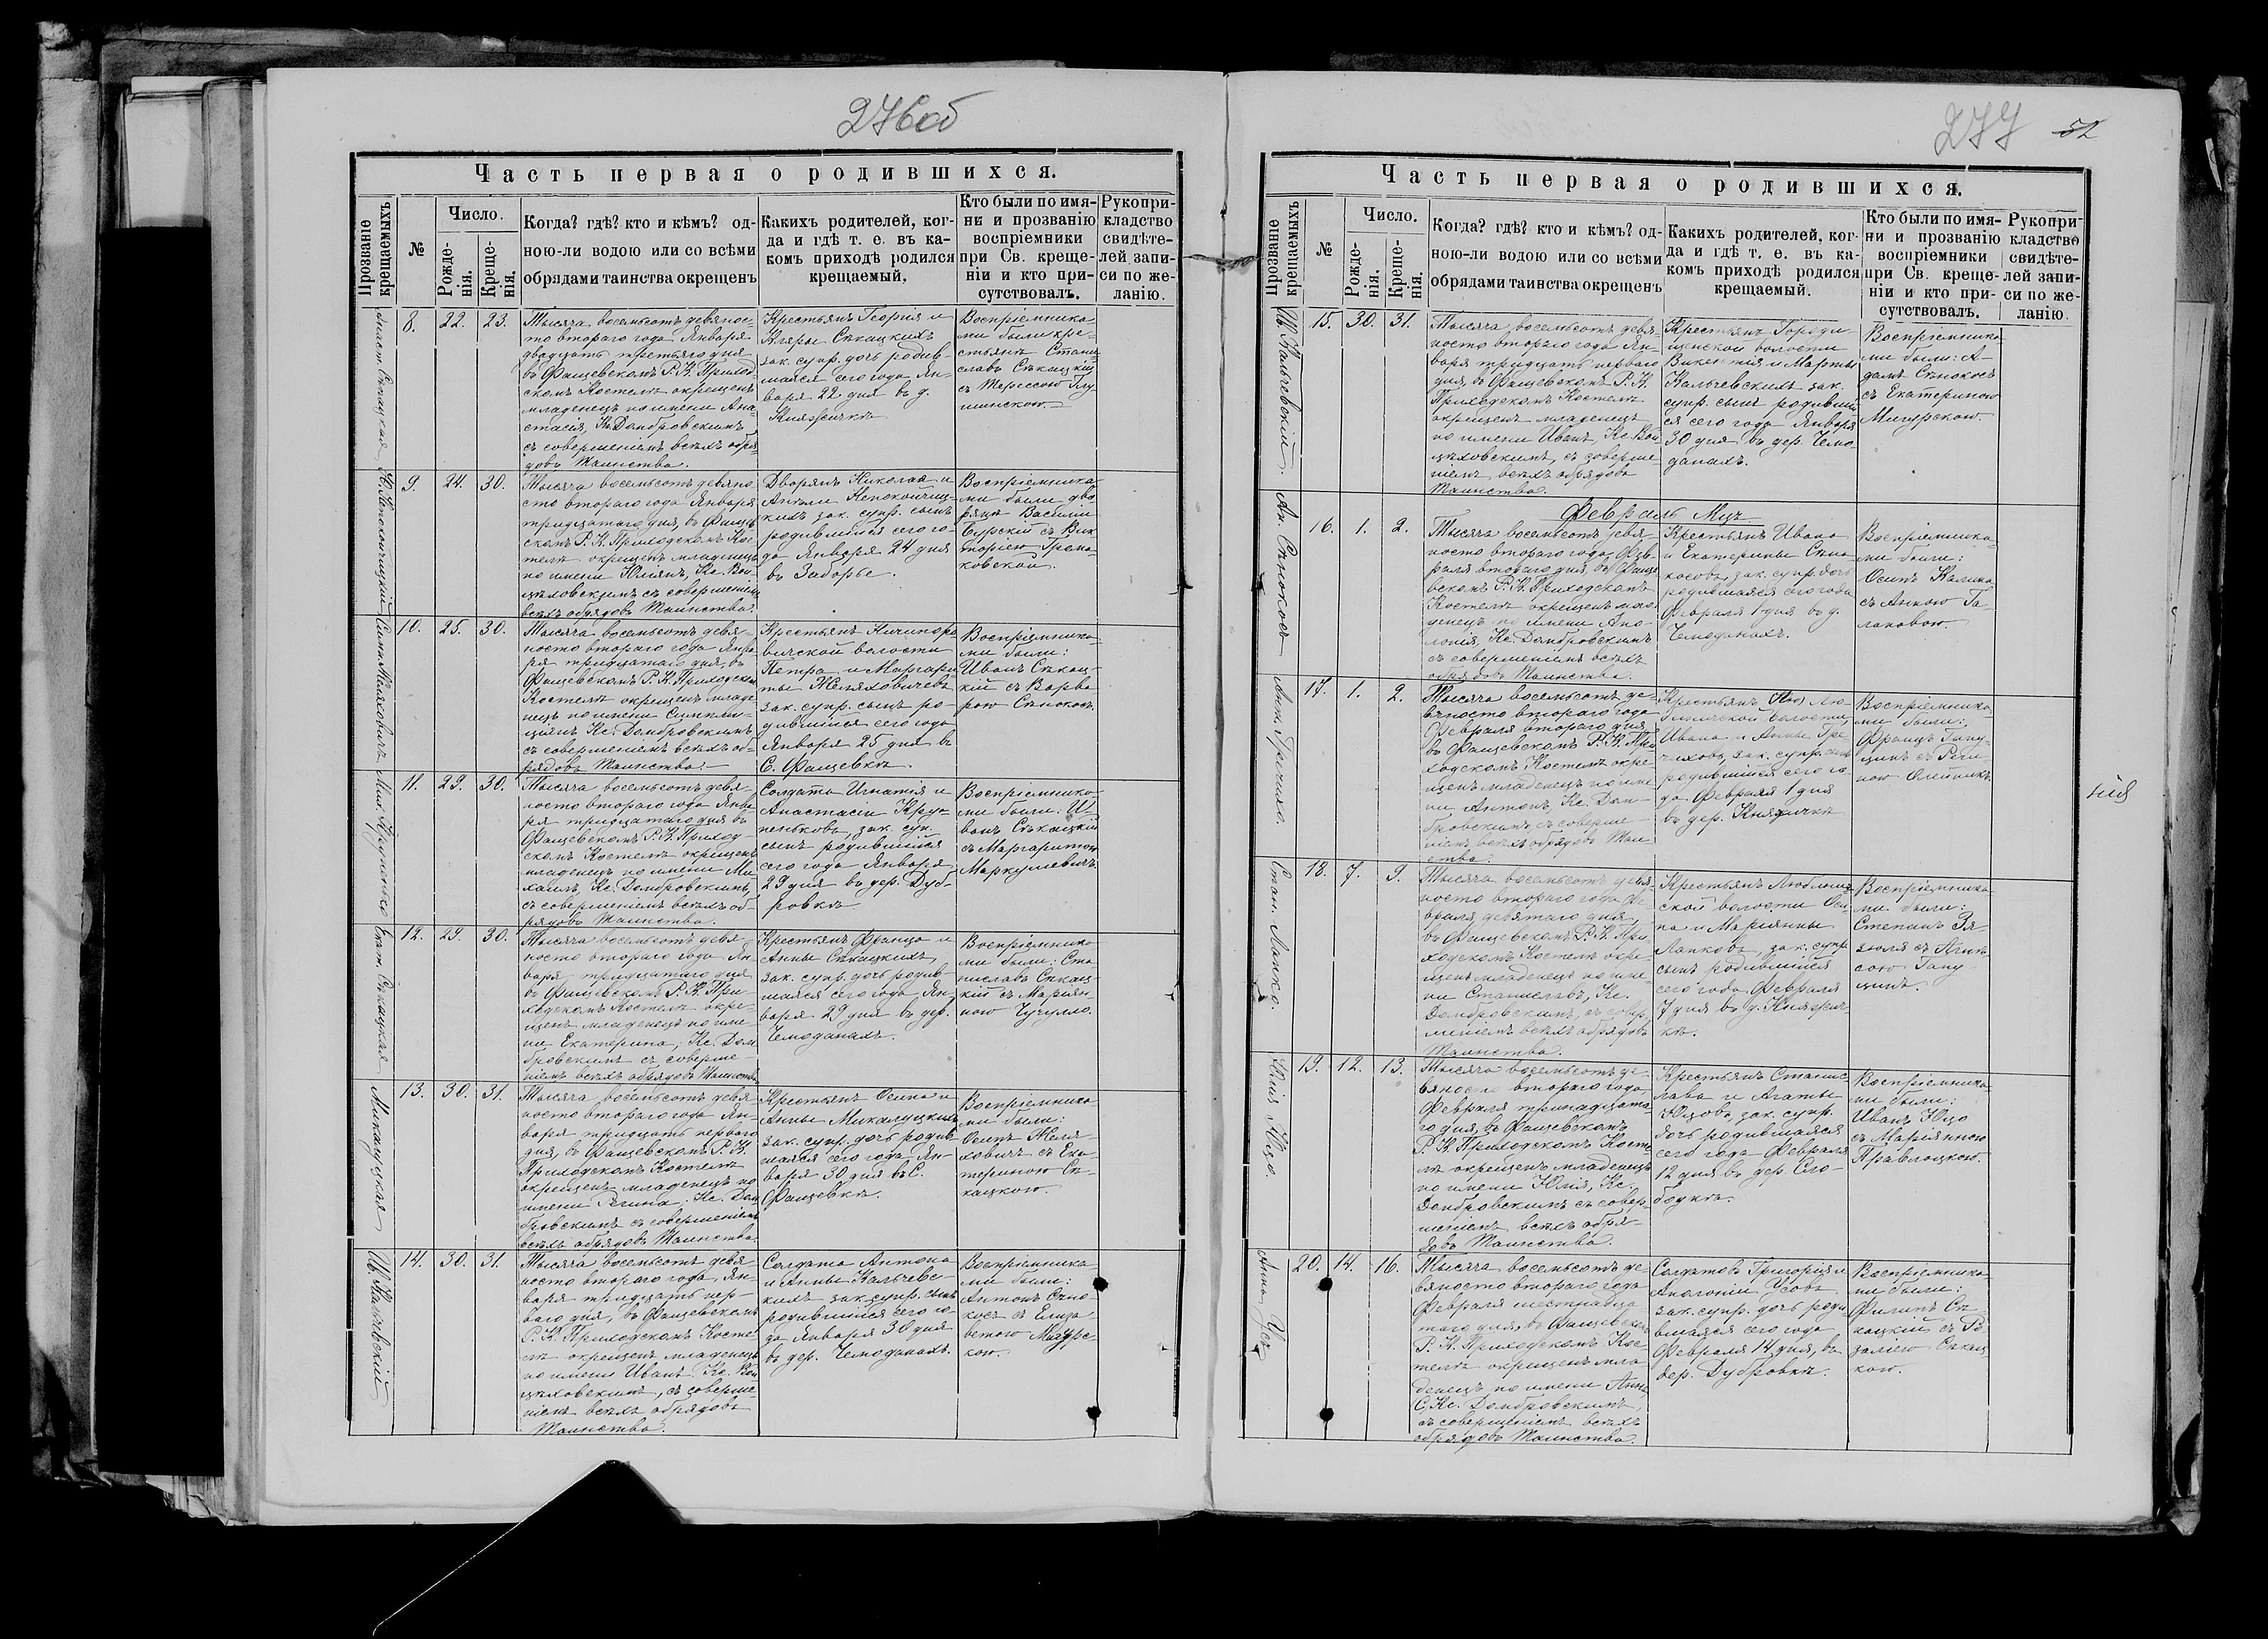 276об
Часть первая о родившихся.
Прозваніе крещаемыхъ
№
Число.
Рожде-
нія.
Креще-
нія.
Когда? гдѣ? кто и кѣмъ? од-
ною-ли водою или со всѣми
обрядами таинства окрещенъ
Какихъ родителей, ког-
да и гдѣ т. е. въ ка-
комъ приходѣ родился
крещаемый.
Кто были по имя-
ни и прозванію
воспріемники
при Св. креще-
ніи и кто при-
сутствовалъ.
Рукопри-
кладство
свидѣте-
лей запи-
си по же-
ланію.
Анаст. Сѣкацкая
8. 22. 23.
Тысяча восемьсотъ девянос-
то втораго года Января
двадцать третьяго дня
въ Фащевскомъ Р. К. Приход-
скомъ Костелѣ окрещенъ
младенецъ по имени Ана-
стасія, Кс. Домбровскимъ
съ совершеніемъ всѣхъ обря-
довъ Таинства.
Крестьянъ Георгія и
Клары Сѣкацкихъ
зак. супр. дочь родив-
шаяся сего года Ян-
варя 22 дня въ д.
Княжичкѣ
Воспріемника-
ми были кре-
стьяне Стани
славъ Сѣкацкій
съ Терессою
9. 24. 30.
Тысяча восемьсотъ девяно-
сто втораго года Января
тридцатаго дня, въ Фащев
скомъ Р. К. Приходскомъ Кос-
телѣ окрещенъ младенецъ
по имени Юліянъ, Кс. Вой-
цѣховскимъ съ совершеніемъ
всѣхъ обрядовъ Таинства.
Дворянъ Николая и
зак. супр. сынъ
родившійся сего го-
да Января 24 дня
въ Заборье.
Воспріемника-
ми были дво
ряне Василій
Бурскій съ Вик
торіею
10. 25. 30.
Тысяча восемьсотъ девя-
носто втораго года Янва
ря тридцатаго дня, въ
Фащевскомъ Р. К. Приходскомъ
Костелѣ окрещенъ младе
нецъ по имени Симпли-
ціянъ Кс. Домбровскимъ
съ совершеніемъ всѣхъ об-
рядовъ Таинства.
Крестьянъ Ничипоро
вичской волости
Петра и Маргари
ты Желяховичевъ
зак. супр. сынъ ро-
дившійся сего года
Января 25 дня въ
С. Фащевкѣ.
Воспріемника-
ми были:
Иванъ Сѣкац-
кій съ Варва
рою Сѣнокос.
11. 29. 30.
Тысяча восемьсотъ девя-
носто втораго года Янва
ря тридцатаго дня въ
Фащевскомъ Р. К. Приход-
скомъ Костелѣ окрещенъ
младенецъ по имени Ми
хаилъ, Кс. Домбровскимъ,
съ совершеніемъ всѣхъ об-
рядовъ Таинства.
Мих. Крупенько
Солдата Игнатія и
Анастасіи Кру-
пеньковъ, зак. суп.
сынъ родившійся
сего года Января
29 дня въ дер. Дуб-
ровкѣ
Воспріемника-
ми были: И-
ванъ Сѣкацкій
съ Маргаритою
Маркулевичъ.
Екат. Сѣкацкая
12. 29. 30.
Тысяча восемьсотъ девя-
носто втораго года Ян
варя тридцатаго дня
въ Фащевскомъ Р. К. При-
ходскомъ Костелѣ окре-
щенъ младенецъ по име-
ни Екатерина, Кс. Дом
бровскимъ съ соверше-
ніемъ всѣхъ обрядовъ Таинства.
Крестьянъ Франца и
Анны Сѣкацкихъ,
зак. супр. дочь родив-
шаяся сего года Ян-
варя 29 дня въ дер.
Чемоданахъ.
Воспріемника
ми были: Ста
ниславъ Сѣкац-
кій съ Маріян-
ною Чучулло.
Микалуцкая
13. 30. 31.
Тысяча восемьсотъ девя
носто втораго года Ян-
варя тридцать перваго
дня, въ Фащевскомъ Р. К.
Приходскомъ Костелѣ
окрещенъ младенецъ по
имени Регина, Кс. Дом
бровскимъ съ совершеніемъ
всѣхъ обрядовъ Таинства.
Крестьянъ Осипа и
Анны Микалуцкихъ
зак. супр. дочь родив
шаяся сего года Ян-
варя 30 дня въ С.
Фащевкѣ.
Воспріемника-
ми были:
Осипъ Желя-
ховичъ съ Ека-
териною Сѣ-
кацкою.
Ив. Кальчевскій
14. 30. 31.
Тысяча восемьсотъ девя
носто втораго года, Ян-
варя тридцать пер-
ваго дня, въ Фащевскомъ
Р. К. Приходскомъ Косте-
лѣ окрещенъ младенецъ
по имени Иванъ, Кс. Вой
цѣховскимъ, съ соверше-
ніемъ всѣхъ обрядовъ
Таинства.
Солдата Антона
и Анны Кальчевс-
кихъ зак. супр. сынъ
родившійся сего го-
да Января 30 дня
въ дер. Чемоданахъ.
Воспріемника
ми были:
Антонъ Сѣно-
косъ съ Елиза-
ветою Мигурс-
кою.
277 52
Часть первая о родившихся.
Прозваніе крещаемыхъ
№
Число.
Рожде-
нія.
Креще-
нія.
Когда? гдѣ? кто и кѣмъ? од-
ною-ли водою или со всѣми
обрядами таинства окрещенъ
Какихъ родителей, ког-
да и гдѣ т. е. въ ка-
комъ приходѣ родился
крещаемый.
Кто были по имя-
ни и прозванію
воспріемники
при Св. креще-
ніи и кто при-
сутствовалъ.
Рукопри-
кладство
свидѣте-
лей запи-
си по же-
ланію.
Ив. Кальчевскій
15. 30. 31.
Тысяча восемьсотъ девя-
носто втораго года Ян-
варя тридцать перваго
дня, въ Фащевскомъ Р. К.
Приходскомъ Костелѣ
окрещенъ младенецъ
по имени Иванъ, Кс. Вой-
цѣховскимъ, съ соверше-
ніемъ всѣхъ обрядовъ
Таинства.
Крестьянъ Городи-
щенской волости
Викентія и Марты
Кальчевскихъ зак.
супр. сынъ родившій
ся сего года Января
30 дня въ дер. Чемо-
данахъ.
Воспріемника-
ми были: А-
дамъ Сѣнокосъ
съ Екатериною
Мигурскою.
Февраль Мцъ
Ап. Сѣнокосъ
16. 1. 2.
Тысяча восемьсотъ девя-
носто втораго года, Фев-
раля втораго дня, въ Фаще-
вскомъ Р. К. Приходскомъ
Костелѣ окрещенъ мла-
денецъ по имени Апо-
лонія, Кс. Домбровскимъ
съ совершеніемъ всѣхъ
обрядовъ Таинства.
Крестьянъ Ивана
и Екатерины Сѣно-
косовъ, зак. супр. дочь
родившаяся сего года
Февраля 1 дня въ д.
Чемоданахъ.
Воспріемника-
ми были:
Осипъ Калина
съ Анною Га-
лаковою.
Ант. Гречихо.
17. 1. 2.
Тысяча восемьсотъ де-
вяносто втораго года
Февраля втораго дня
въ Фащевскомъ Р. К. При
ходскомъ Костелѣ окре
щенъ младенецъ по име
ни Антонъ, Кс. Дом-
бровскимъ, съ соверше-
ніемъ всѣхъ обрядовъ Таин
ства.
волости,
Ивана и Анны Гре
чиховъ, зак. супр. сынъ
родившійся сего го-
да Февраля 1 дня
въ дер. Княжичкѣ
Воспріемника-
ми были:
Францъ Гапу-
цинъ съ Реги-
ною Олейникъ.
Стан. Лапко.
18. 7. 9.
Тысяча восемьсотъ девя-
носто втораго года Фе-
враля девятаго дня,
въ Фащевскомъ Р. К. При-
ходскомъ Костелѣ окре-
щенъ младенецъ по име-
ни Станиславъ, Кс.
Домбровскимъ, съ совер-
шеніемъ всѣхъ обрядовъ
Таинства.
Крестьянъ
ской волости Оси-
па и Маріянны
Лапковъ, зак. супр.
сынъ родившійся
сего года Февраля
7 дня въ д. Княжич-
кѣ.
Воспріемника-
ми были:
Степанъ Зя-
зюля съ Агнѣ-
сою Гапу-
цинъ.
Юлія Юцо.
19. 12. 13.
Тысяча восемьсотъ де-
вяносто втораго года
Февраля тринадцата
го дня, въ Фащевскомъ
Р. К. Приходскомъ Косте
лѣ окрещенъ младенецъ
по имени Юлія, Кс.
Домбровскимъ съ совер-
шеніемъ всѣхъ обря-
довъ Таинства.
Крестьянъ Станис-
лава и Агаты
Юцовъ, зак. супр.
дочь родившаяся
сего года Февраля
12 дня въ дер. Сло-
бодкѣ.
Воспріемника-
ми были:
Иванъ Юцо
съ Маріянною
Анна Усъ
20. 14. 16.
Тысяча восемьсотъ де
вяносто втораго года
Февраля шестнадца
таго дня, въ Фащевскомъ
Р. К. Приходскомъ Кос-
телѣ окрещенъ мла
денецъ по имени Анна
Кс. Домбровскимъ,
съ совершеніемъ всѣхъ
обрядовъ Таинства.
Солдатовъ Григорія и
Апалоніи Усовъ
зак. супр. дочь роди-
вшаяся сего года
Февраля 14 дня, въ
дер. Дубровкѣ.
Воспріемника-
ми были:
Филипъ Сѣ-
кацкій съ Ро-
заліею Сѣкац
кою.